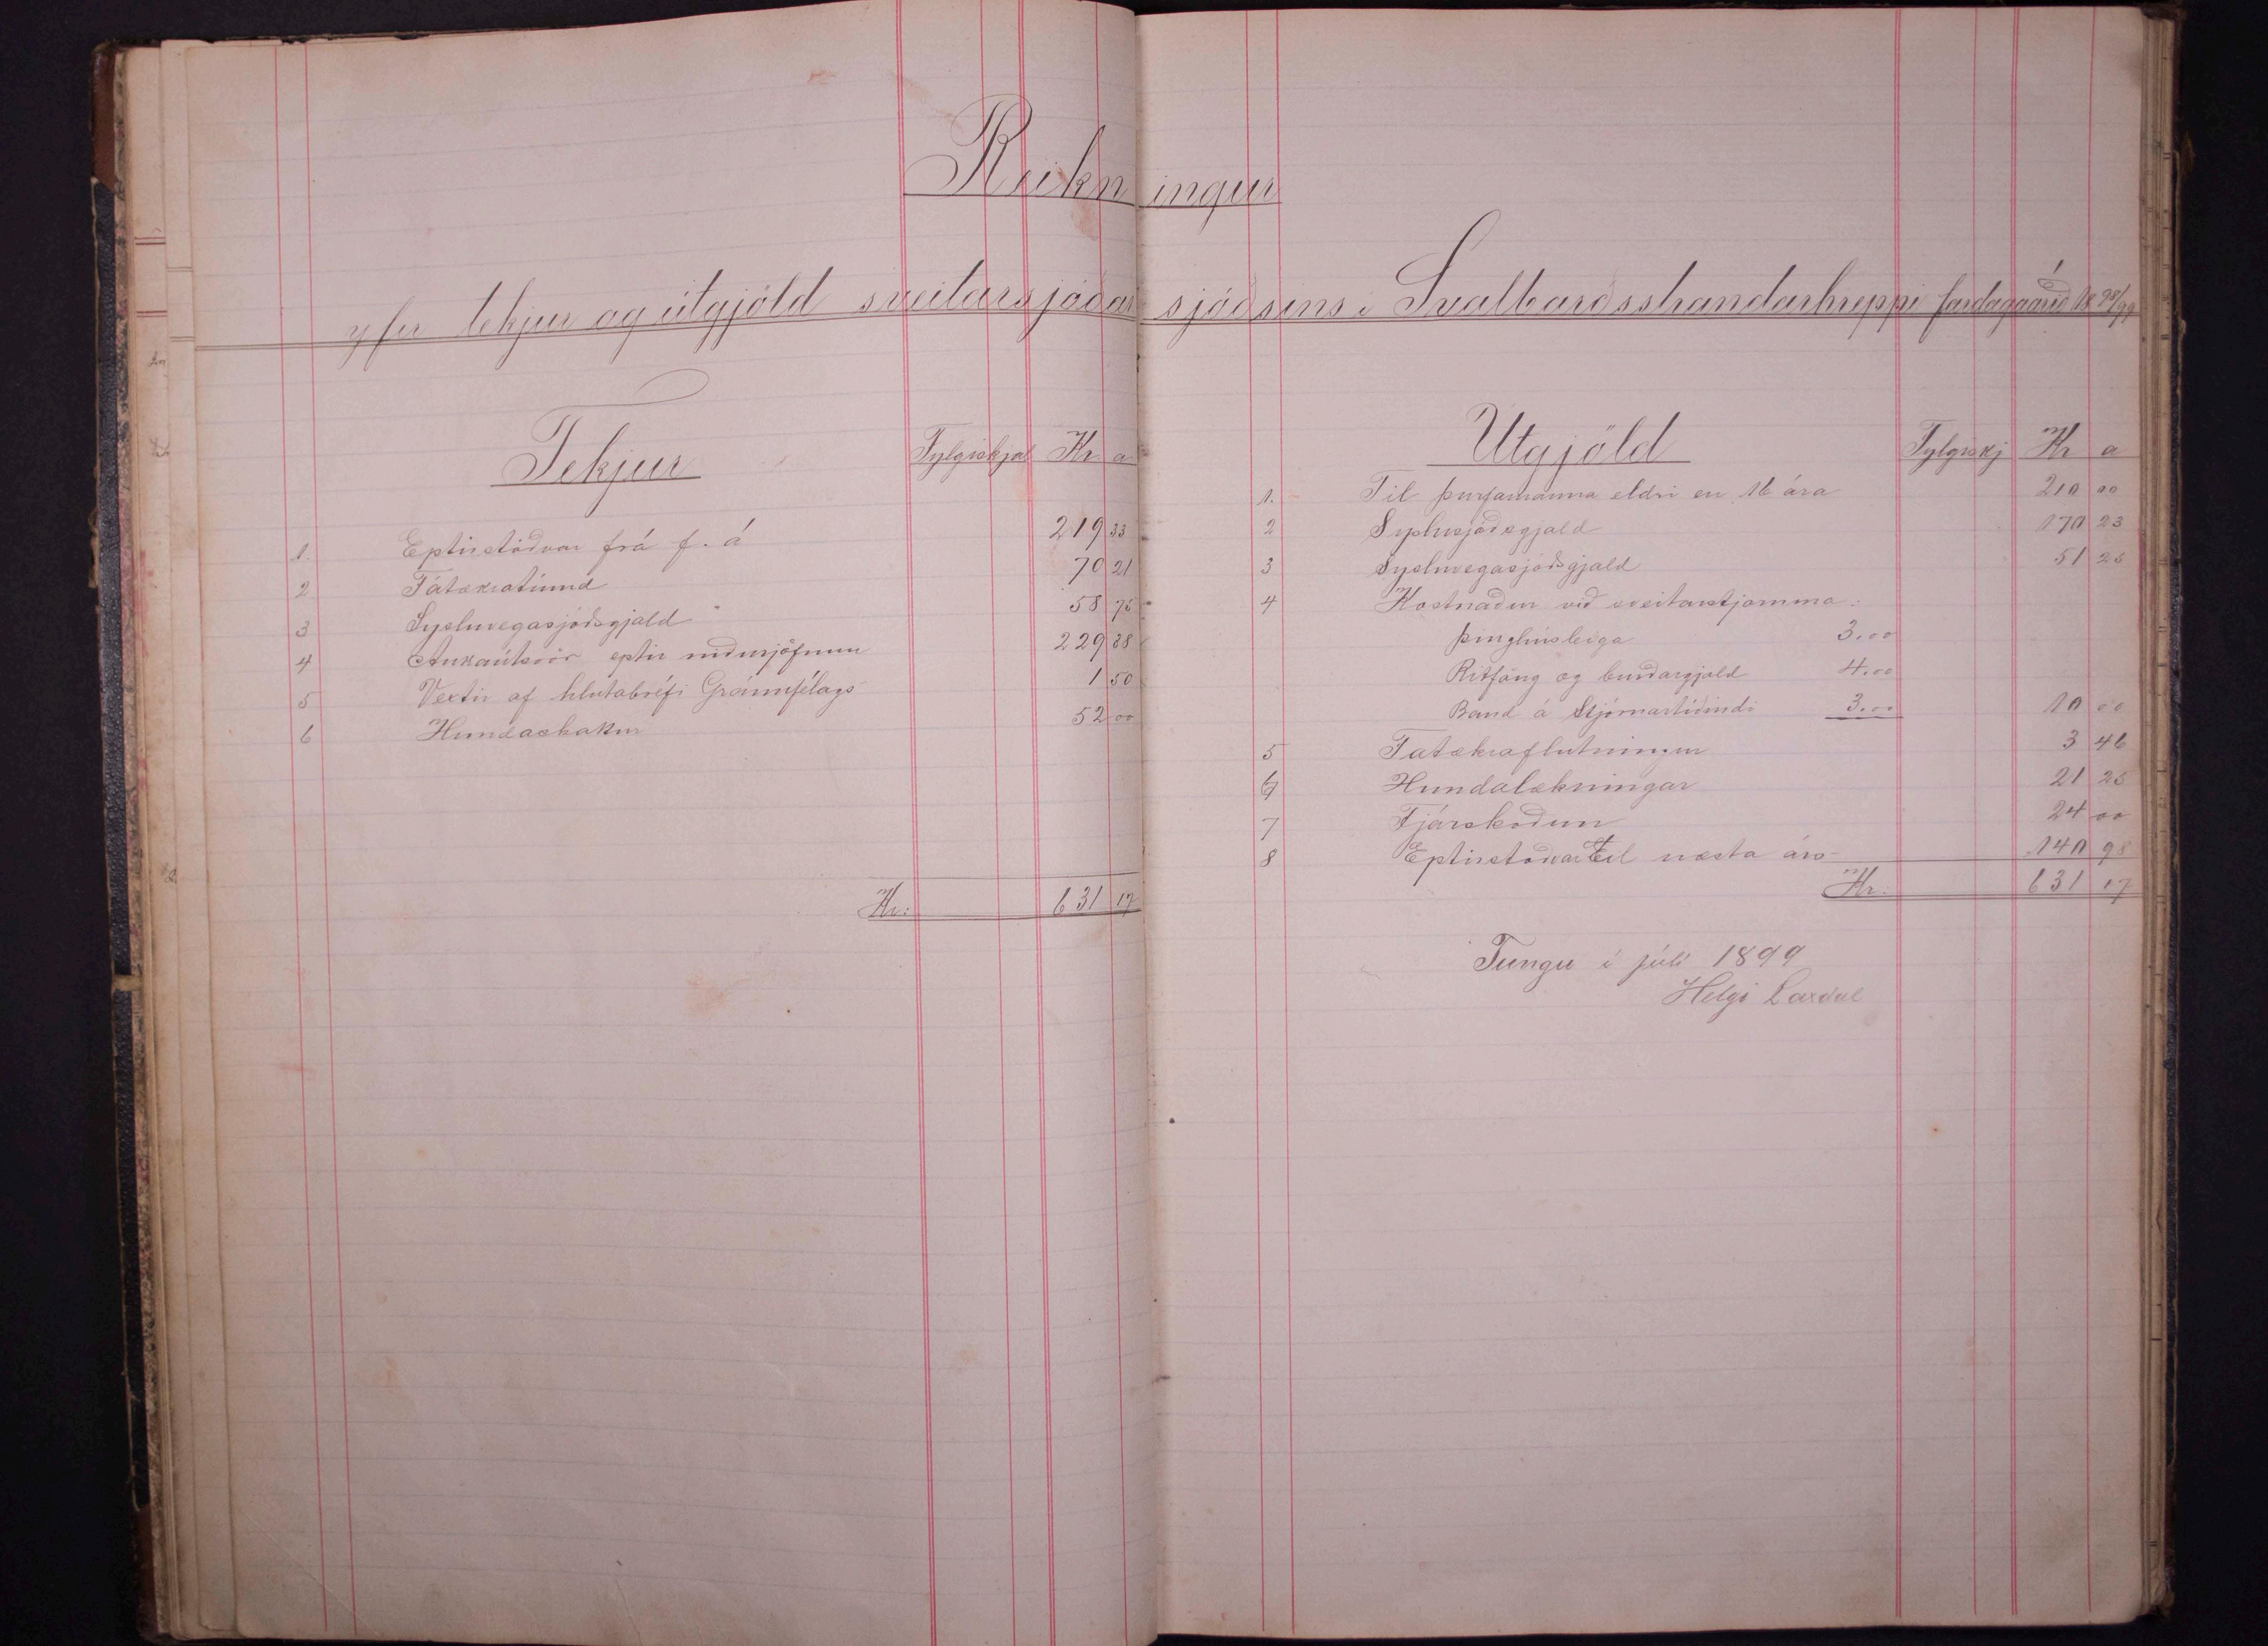 Reikningur
yfir tekjur og útgjöld sveitarsjóðar sjóðsins í Svalbarðsstrandarhreppi fardagaárið 1898/99
Tekjur Fylgiskjal Kr a
1. Eptirstöðvar frá f. á 219 33
2 Fátækratíund 70 21
3 Sysluvegasjóðsgjald 58 75
4 Aukaútsvör eptir niðurjöfnun 229 38
5 Vextir af hlutabréfi Gránufélags 1 50
6 Hundaskattur 52 00
Kr: 631 17
Utgjöld Fylgiskj Kr a
1. Til þurfamanna eldri en 16 ára 210 00
2 Syslusjóðsgjald 170 23
3 Sysluvegasjóðsgjald 51 25
4 Kostnaður við sveitarstjornina:
þinghúsleiga 3.00
Ritföng og burðargjald 4.00
Band á Stjórnartíðindi 3.00 10 00
5 Fatækraflutningur 3 46
6 Hundalækningar 21 25
7 Fjárskoðun 24 00
8 Eptirstöðvar til næsta árs 140 98
Kr: 631 17
Tungu í júlí 1899
Helgi Laxdal